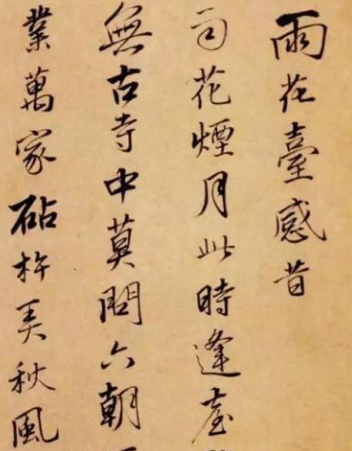 雨花臺感昔
花煙月此時逢臺
無古寺中莫問六朝
業萬家砧杵秋風